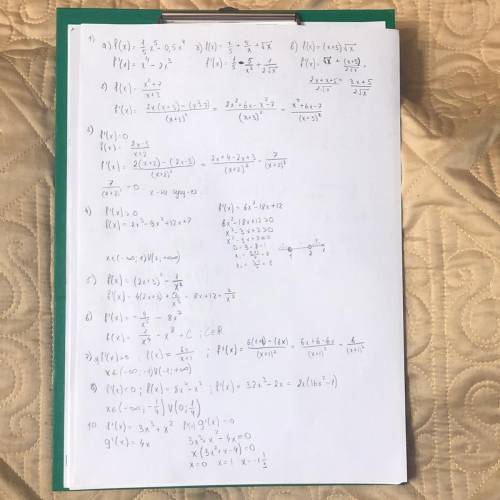 1) а) f(x) = 1/5 x⁵ - 0,5x⁴ б) f(x) = x/3 + 5/x + √x в) f(x) = (x+3)√x
f'(x) = x⁴ - 2x³ f'(x) = 1/3 - 5/x² + 1/2√x f'(x) = √x + (x+3)/2√x =
2x+x+3/2√x = 3x+3/2√x
f(x) = x²+7/x+3
f'(x) = 2x(x+3) - (x²+7)/(x+3)² = 2x²+6x-x²-7/(x+3)² = x²+6x-7/(x+3)²
3) f'(x)=0
f(x) = 2x-3/x+2
f'(x) = 2(x+2) - (2x-3)/(x+2)² = 2x+4-2x+3/(x+2)² = 7/(x+2)²
7/(x+2)² = 0
4) f'(x) > 0 f'(x) = 6x²-18x+12
f(x) = 2x³-9x²+12x+7 6x²-18x+12>0
x²-3x+2>0
x²-3x+2=0
x∈(-∞; 1)∪(2; +∞)
5) f(x) = (2x+3)² - 1/x²
f'(x) = 4(2x+3) + 2/x³ = 8x+12+2/x³
6)
+ C ; C∈R
7) f'(x)>0 ; f(x) = 6x/x+1 ; f'(x) = = 6x+6-6x/(x+1)² = 6/(x+1)²
x∈(-∞; -1)∪(-1; +∞)
8) f'(x)<0 ; f(x) = 8x⁴-x² ; f'(x) = 32x³-2x = 2x(16x²-1)
x∈(-∞; -1/4)∪(0; 1/4)
10. f'(x) = 3x³+x² g'(x) = 0
g'(x) = 4x 3x³+x²-4x=0
x(3x²+x-4)=0
x=0 x=1 x=-1 1/3